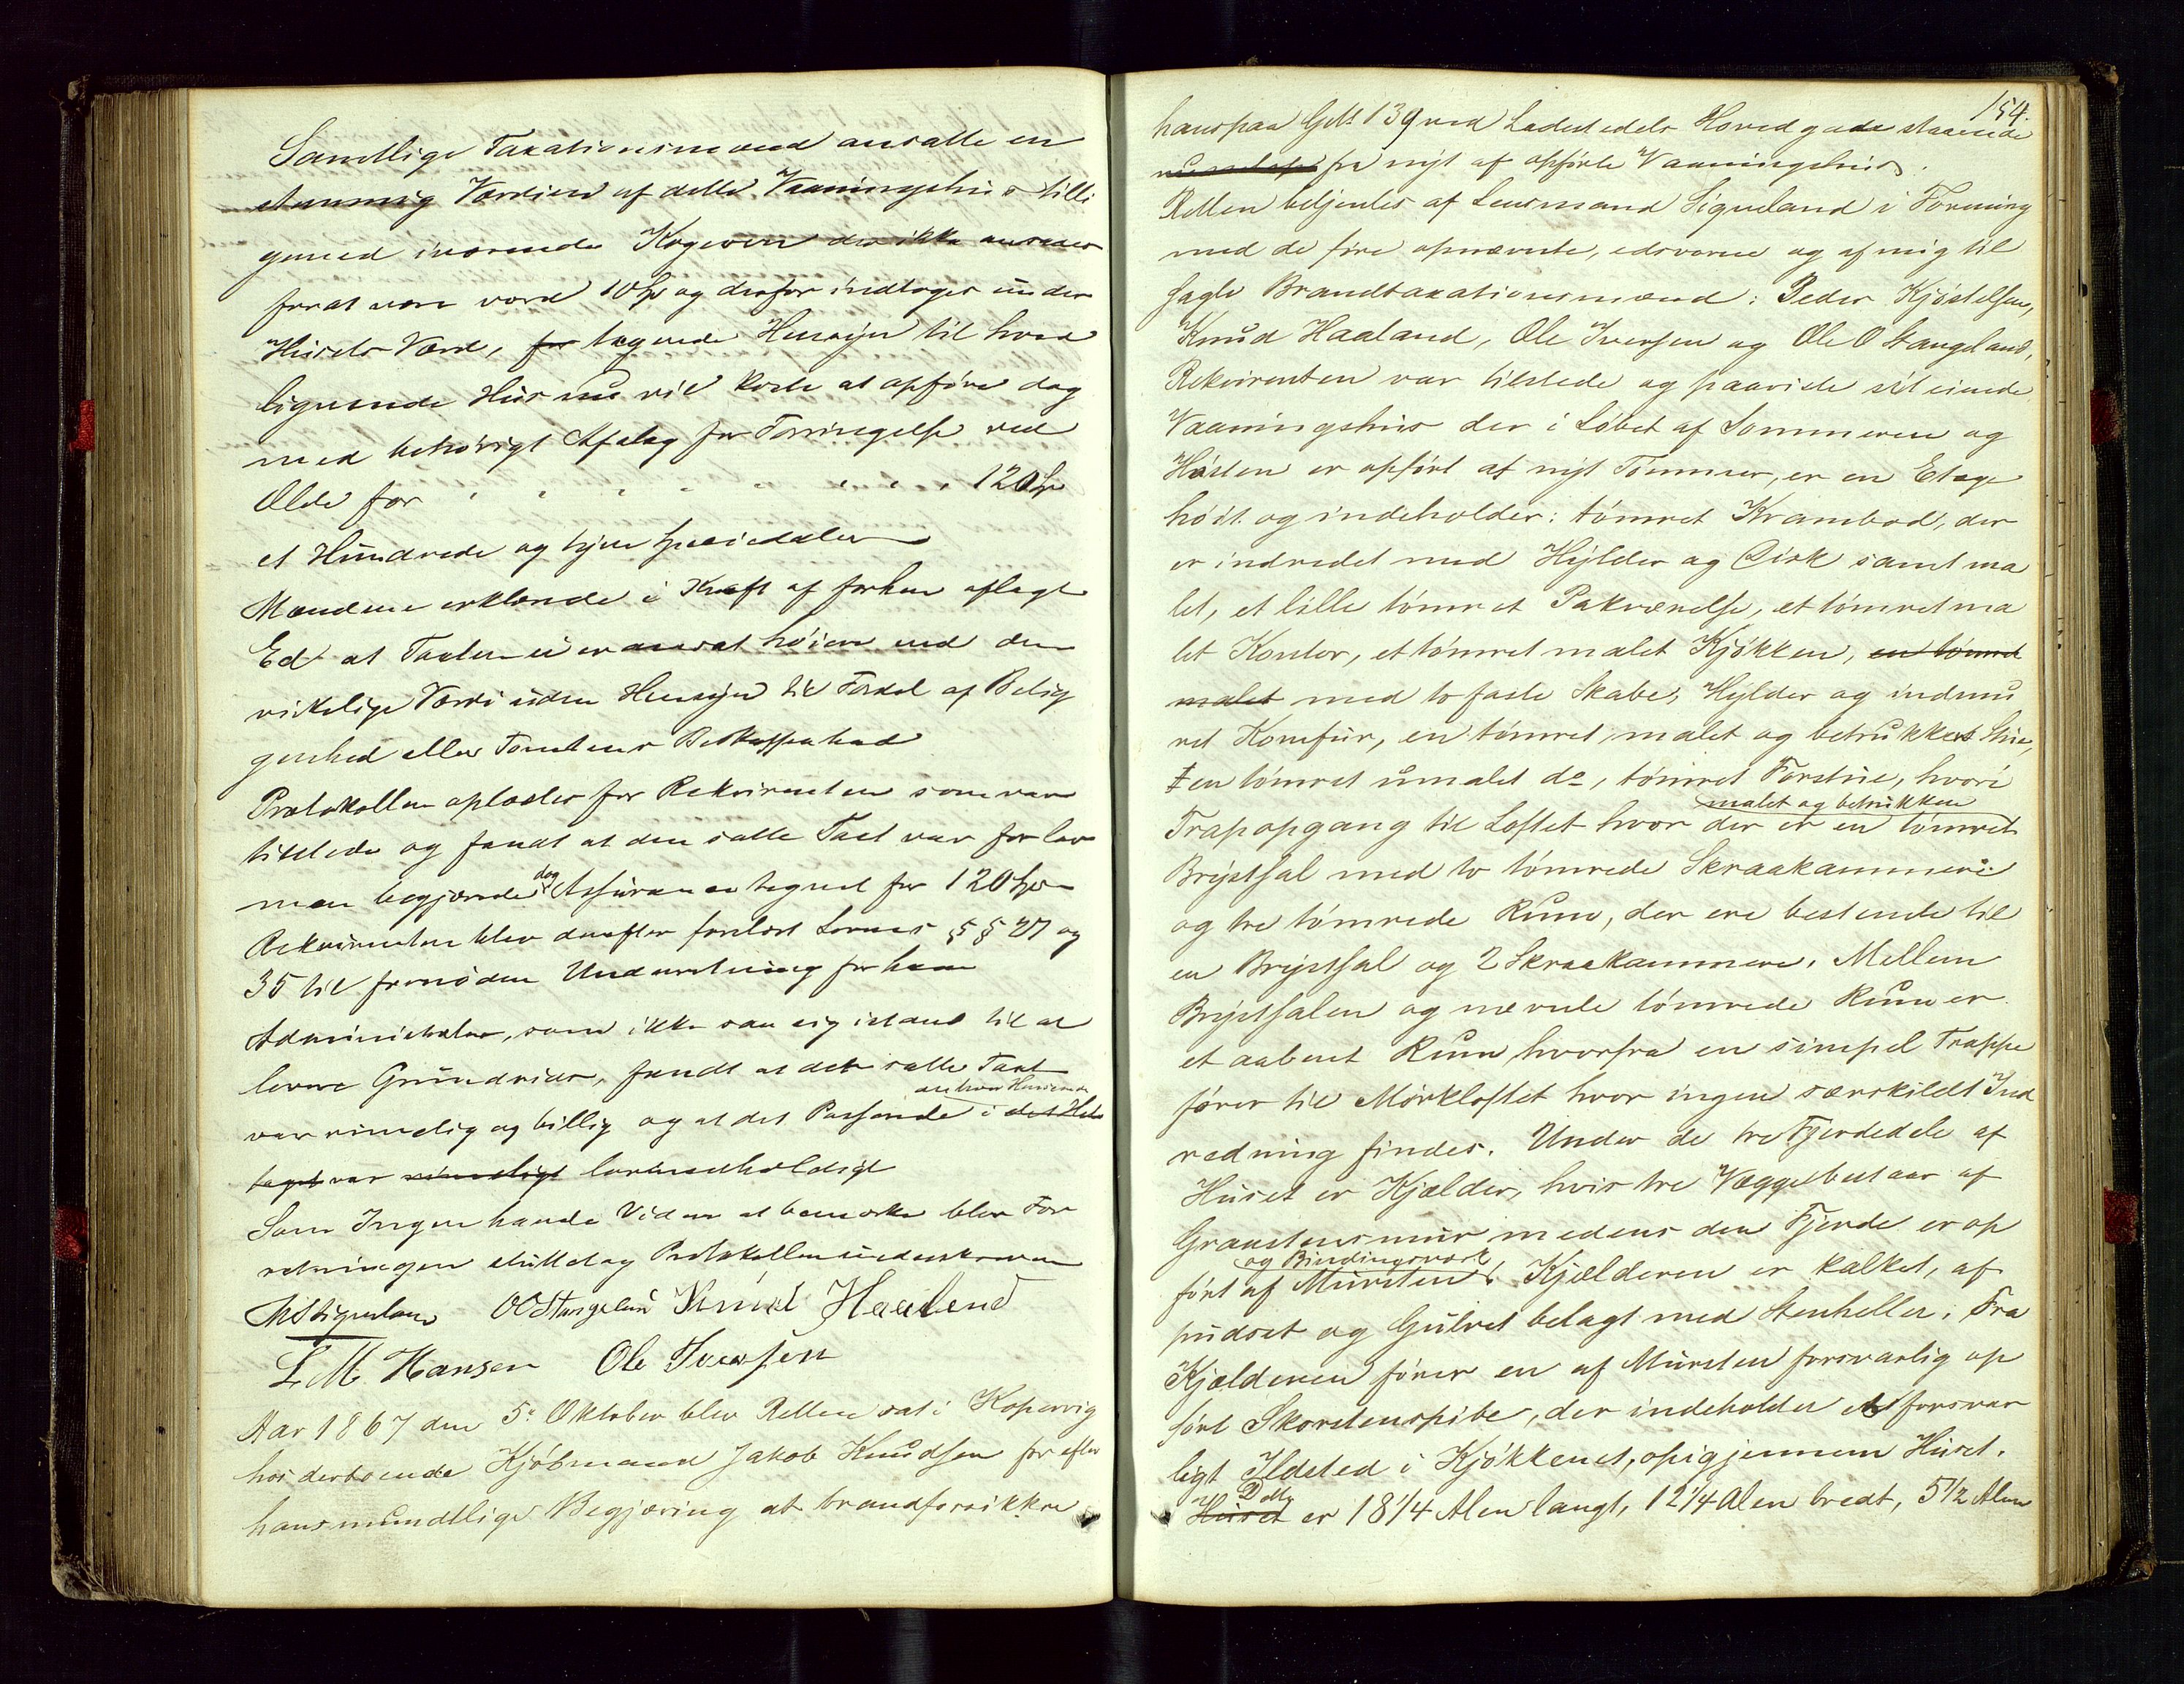 Samtlige Taxationsmænd ansatte en
stemmig Værdien af dette Vaaningshus tilli
gemed ivarende Kogeovn der ikke ansees
forat være værd 10 Spd og derfor indtages under
Husets Værd, for tagende Hensyn til hvad
lignende Hus nu vil koste at opføre dog
med behørigt Afslag for Forringelse ved
Ælde for " " " " " " " " 120 Sp
et Hundrede og tyve Speciedaler
Mændene erklærede i Kraft af forhen aflagt
Ed at Taxten ei er ansat høiere end den
virkelige Værdi uden Hensyn til Fordel af Belig
genhed eller Tomtens Beskaffenhed
Protokollen oplæstes for Rekvirenten som var
tilstede og fandt at den satte Taxt var for lav
men begjærede dog Assurance tegnet for 120 Spd
Rekvirenten blev derefter forelæst Lovens §§ 27 og
35 til fornøden Underretning for ham
Administrator, som ikke saa sig istand til at
levere Grundrids, fandt at den satte Taxt
var rimelig og billig og at det Passerede i det Hele
anhver Henseende
taget var rimeligt lovmedholdigt
Som Ingen havde Videre at bemærke blev For
retningen sluttet og Protokollen underskreven
OOStangeland Knud Haaland
L. M. Hansen Ole Iversen
Aar 1867 den 5e Oktober blev Retten sat i Kopervig
hos derboende Kjøbmand Jakob Knudsen for efter
hans mundtlige Begjæring at brandforsikkre
154.
hans paa Gdt 139 ved Ladestedets Hovedgade staaende
fra nyt af opførte Vaaningshus.
Retten betjentes af Lensmand Sigveland i Forening
med de fire opnævnte, edsvorne og af mig til
sagte Brandtaxationsmænd: Peder Kjøstelsen,
Knud Haaland, Ole Iversen og Ole O Stangeland,
Rekvirenten var tilstede og paaviste sit eiende
Vaaningshus der i Løbet af Sommeren og
Høsten er opført af nyt Tømmer, er en Etage
høit og indeholder: tømret Krambod, der
er indredet med Hylder og Disk samt ma
let, et lille tømret Pakværelse, et tømret ma
let Kontor, et tømret malet Kjøkken, en tømret
malet med to faste Skabe, Hylder og indmu
ret Komfur, en tømret, malet og betrukket Stue,
en tømret umalet do, tømret Forstue, hvori
malet og betrukken
Trapopgang til Loftet hvor der er en tømret
Brystsal med to tømrede Skraakammere
og tre tømrede Rum, der ere bestemte til
en Brystsal og 2 Skraakammere. Mellem
Brystsalen og nævnte tømrede Rum er
et aabent Rum hvorfra en simpel Trappe
fører til Mørkloftet hvor ingen særskildt Ind
redning findes. Under de tre Fjerdedele af
Huset er Kjælder, hvis tre Vægge bestaar af
Graastensmur medens den Fjerde er op
og Bindingsværk
ført af Mursten. Kjælderen er kalket, af
pudset og Gulvet belagt med Stenheller. Fra
Kjælderen fører en af Mursten forsvarlig op
ført Skorstenspibe, der indeholder et forsvar
ligt Ildsted i Kjøkkenet, opigjennem Huset.
Dette
Huset er 18 1/4 Alen langt, 12 1/4 Alen bredt, 5 1/2 Alen